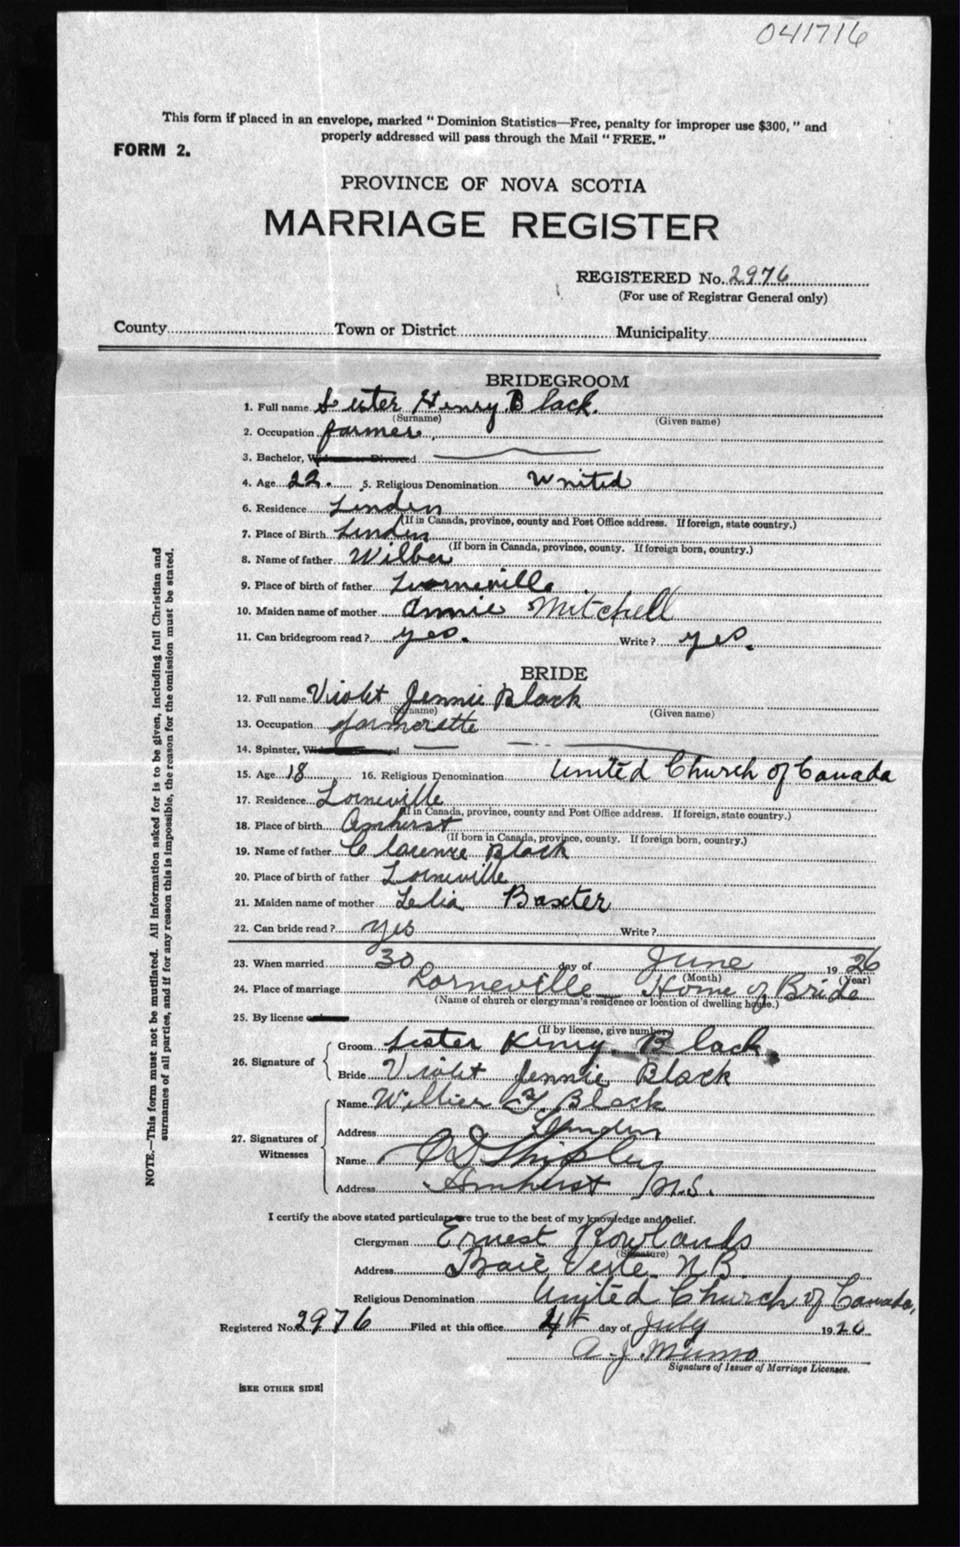 041716
This form if placed in an envelope, marked "Dominion Statistics—Free, penalty for improper use $300," and
properly addressed will pass through the Mail "FREE."
FORM 2.
PROVINCE OF NOVA SCOTIA
MARRIAGE REGISTER
REGISTERED No. 2976
(For use of Registrar General only)
County Town or District Municipality
BRIDEGROOM
1. Full name Lester Henry Black.
(Surname) (Given name)
2. Occupation farmer
3. Bachelor,
4. Age 22. 5. Religious Denomination United
6. Residence Linden
(If in Canada, province, county and Post Office address. If foreign, state country.)
7. Place of Birth Linden
(If born in Canada, province, county. If foreign born, country.)
8. Name of father Wilber
9. Place of birth of father Lorneville
10. Maiden name of mother Annie Mitchell
11. Can bridegroom read? yes. Write? yes.
BRIDE
12. Full name Violet Jennie Black
(Surname) (Given name)
13. Occupation farmerette
14. Spinster,
15. Age 18 16. Religious Denomination United Church of Canada
17. Residence Lorneville
(If in Canada, province, county and Post Office address. If foreign, state country.)
18. Place of birth Amherst
(If born in Canada, province, county. If foreign born, country.)
19. Name of father Clarence Black
20. Place of birth of father Lorneville
21. Maiden name of mother Lelia Baxter
22. Can bride read? Yes Write?
23. When married 30 day of June 19 26
(Month) (Year)
24. Place of marriage Lorneville Home of Bride
(Name of church or clergyman's residence or location of dwelling house.)
25. By license
(If by license, give number)
26. Signature of Groom Lester Henry Black
Bride Violet Jennie Black
27. Signatures of Witnesses
Name Black
Address Linden
Name
Address Amherst N.S.
I certify the above stated particulars are true to the best of my knowledge and belief.
Clergyman Ernest Rowlands
(Signature)
Address Baie Verte N.B.
Religious Denomination United Church of Canada,
Registered No. 2976 Filed at this office 4th day of July 1926
A. J. Munro
Signature of Issuer of Marriage Licenses.
[SEE OTHER SIDE]
NOTE.—This form must not be mutilated. All information asked for is to be given, including full Christian and
surnames of all parties, and if for any reason this is impossible, the reason for the omission must be stated.